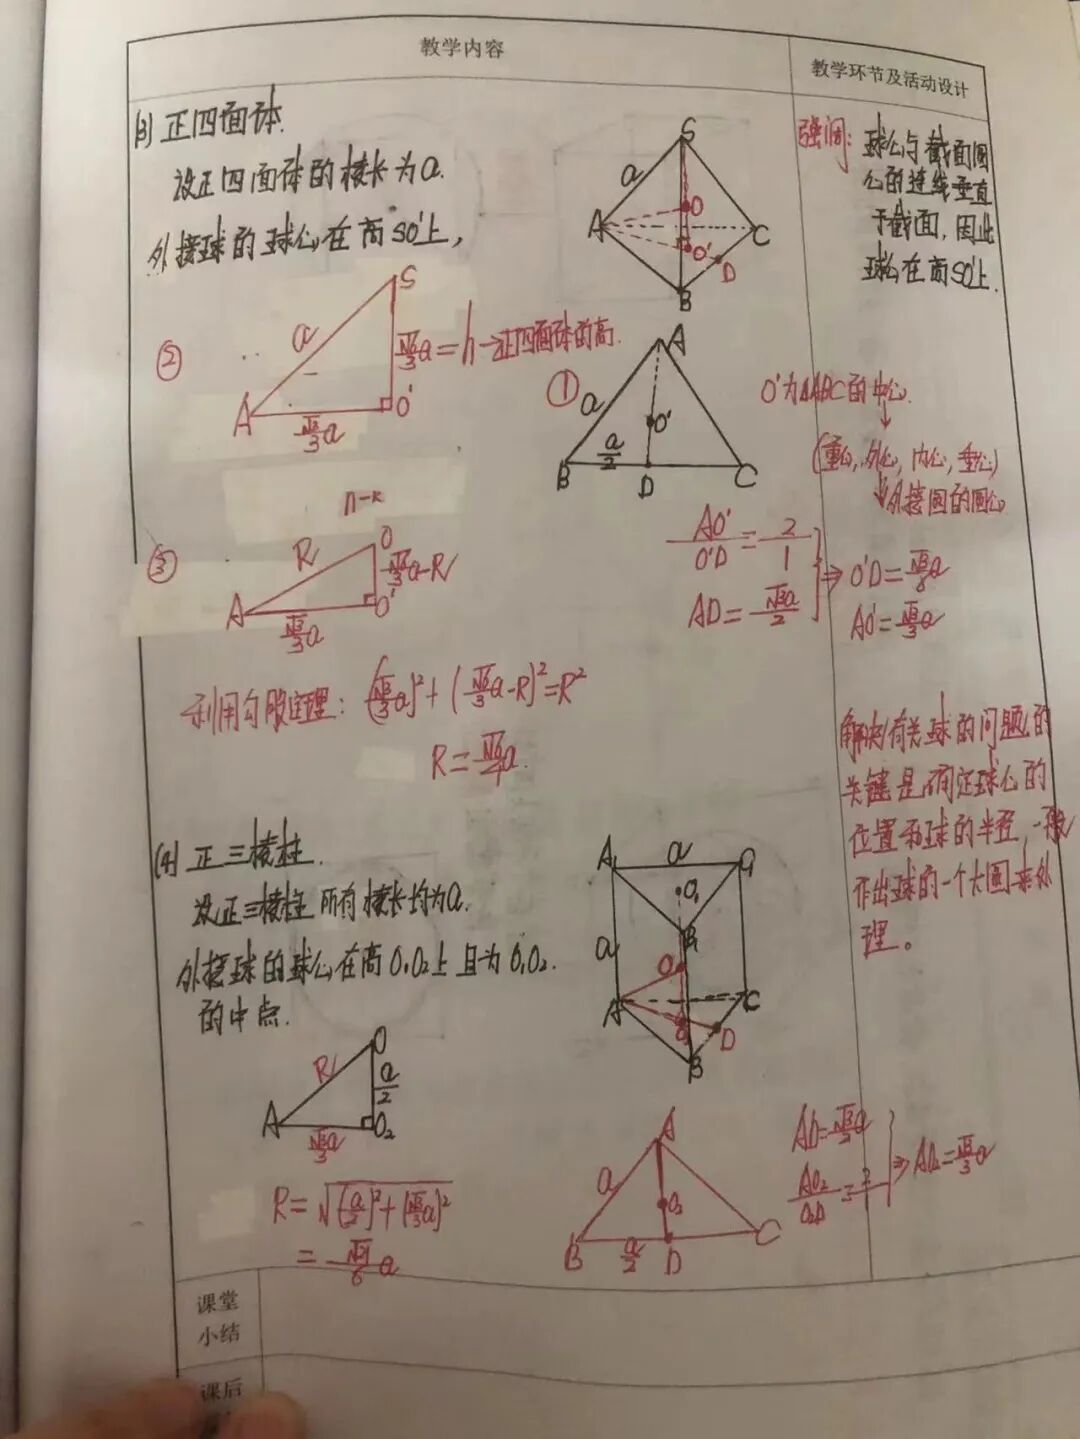 教学内容
教学环节及活动设计
(3) 正四面体.
设正四面体的棱长为a.
外接球的球心在高SO'上,
S
a
A
O
O'
C
D
B
强调: 球心与截面圆
心的连线垂直
于截面, 因此
球心在高SO'上.
②
S
a
√6/3 a = h → 正四面体的高.
A
√3/3 a
O'
①
A
a
O'
B
a/2
D
C
O'为△ABC的中心.
(重心, 外心, 内心, 垂心)
外接圆的圆心
AO'/O'D = 2/1
AD = √3a/2
⇒ O'D = √3/6 a
AO' = √3/3 a
③
R
O
√6/3 a-R
A
√3/3 a
O'
利用勾股定理: (√3/3 a)² + (√6/3 a-R)² = R²
R = √6/4 a.
解决有关球的问题的
关键是确定球心的
位置和球的半径, 一般
作出球的一个大圆来处
理。
(4) 正三棱柱.
设正三棱柱所有棱长均为a.
外接球的球心在高O₁O₂上且为O₁O₂
的中点.
A₁
a
C₁
O₁
B₁
a
O
A
C
O₂
D
B
O
R
a/2
A
√3/3 a
O₂
R = √((a/2)² + (√3/3 a)²)
= √21/6 a
A
a
O₂
B
a/2
D
C
AD = √3/2 a
AO₂/O₂D = 2/1
⇒ AO₂ = √3/3 a
课堂
小结
课后